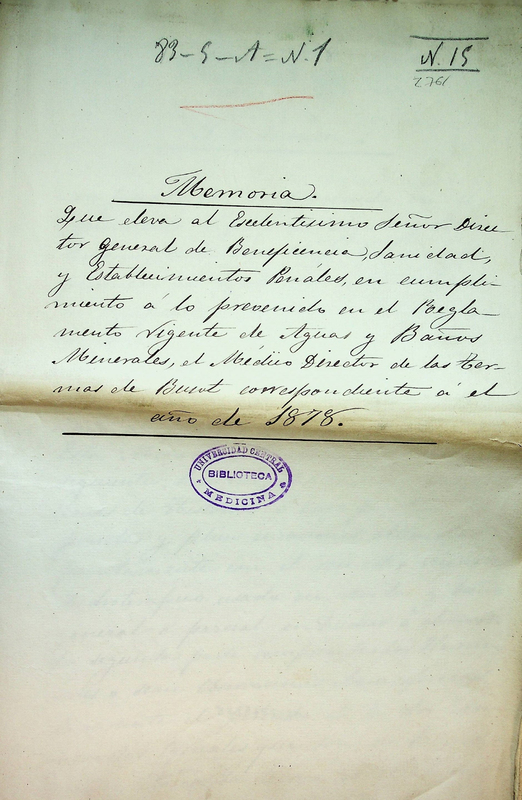 83-5-A=N.1
N. 15
2761
Memoria.
Que eleva al Escelentisimo Señor Direc
tor General de Beneficencia, Sanidad,
y Establecimientos Penales, en cumpli-
miento á lo prevenido en el Regla-
mento vigente de Aguas y Baños
Minerales, el Medico Director de las Ter-
mas de Busot correspondiente á el
año de 1878.
UNIVERSIDAD CENTRAL
BIBLIOTECA
MEDICINA